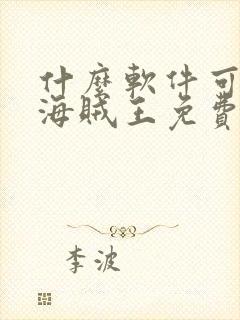 什麼軟件可
海賊王免費
李波